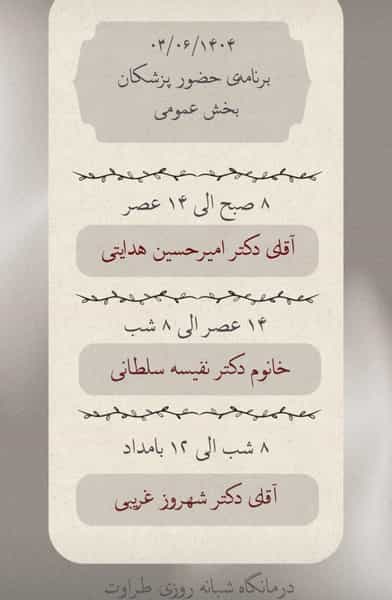 ۰۳/۰۶/۱۴۰۴
برنامه‌ی حضور پزشکان
بخش عمومی
۸ صبح الی ۱۴ عصر
آقای دکتر امیرحسین هدایتی
۱۴ عصر الی ۸ شب
خانوم دکتر نفیسه سلطانی
۸ شب الی ۱۲ بامداد
آقای دکتر شهروز غریبی
درمانگاه شبانه روزی طراوت